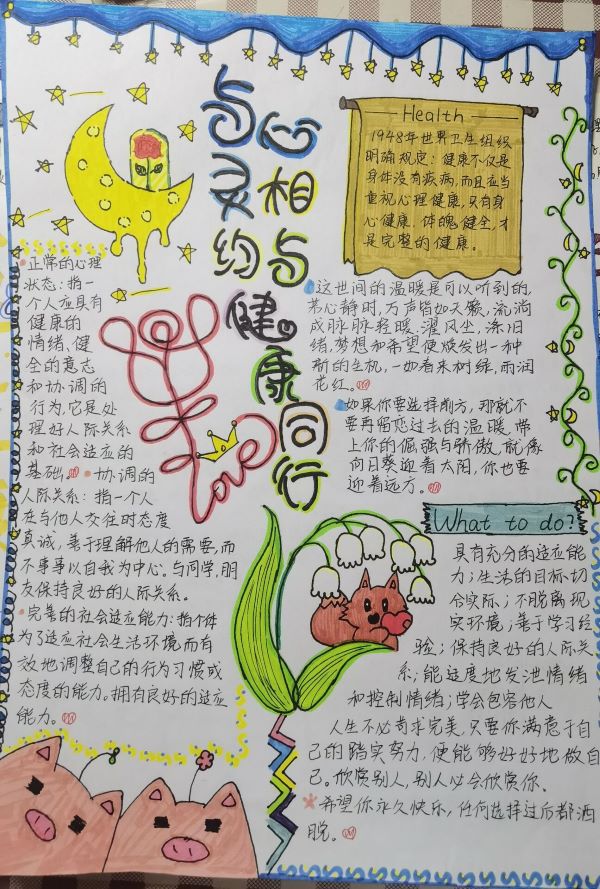 与心灵相约
与健康同行
Health
1948年世界卫生组织
明确规定：健康不仅是
身体没有疾病，而且应当
重视心理健康，只有身
心健康.体魄健全，才
是完整的健康。
正常的心理
状态：指一
个人应具有
健康的
情绪、健
全的意志
和协调的
行为，它是处
理好人际关系
和社会适应的
基础。
协调的
人际关系：指一个人
在与他人交往时态度
真诚，善于理解他人的需要，而
不事事以自我为中心。与同学，朋
友保持良好的人际关系。
完善的社会适应能力：指个体
为了适应社会生活环境而有
效地调整自己的行为习惯或
态度的能力。拥有良好的适应
能力。
Love
这世间的温暖是可以听到的，
若心静时，万声皆如天籁，流淌
成脉脉轻暖.濯风尘，涤旧
绪，梦想和希望便焕发出一种
新的生机，一如春来树绿，雨润
花红。
如果你要选择前方，那就不
要再留恋过去的温暖，带
上你的倔强与骄傲，就像
向日葵迎着太阳，你也要
迎着远方。
What to do?
具有充分的适应能
力；生活的目标切
合实际；不脱离现
实环境；善于学习经
验；保持良好的人际关
系；能适度地发泄情绪
和控制情绪；学会包容他人
人生不必苛求完美，只要你满意于自
己的踏实努力，便能够好好地做自
己。欣赏别人，别人必会欣赏你。
希望你永久快乐，任何选择过后都洒
脱。